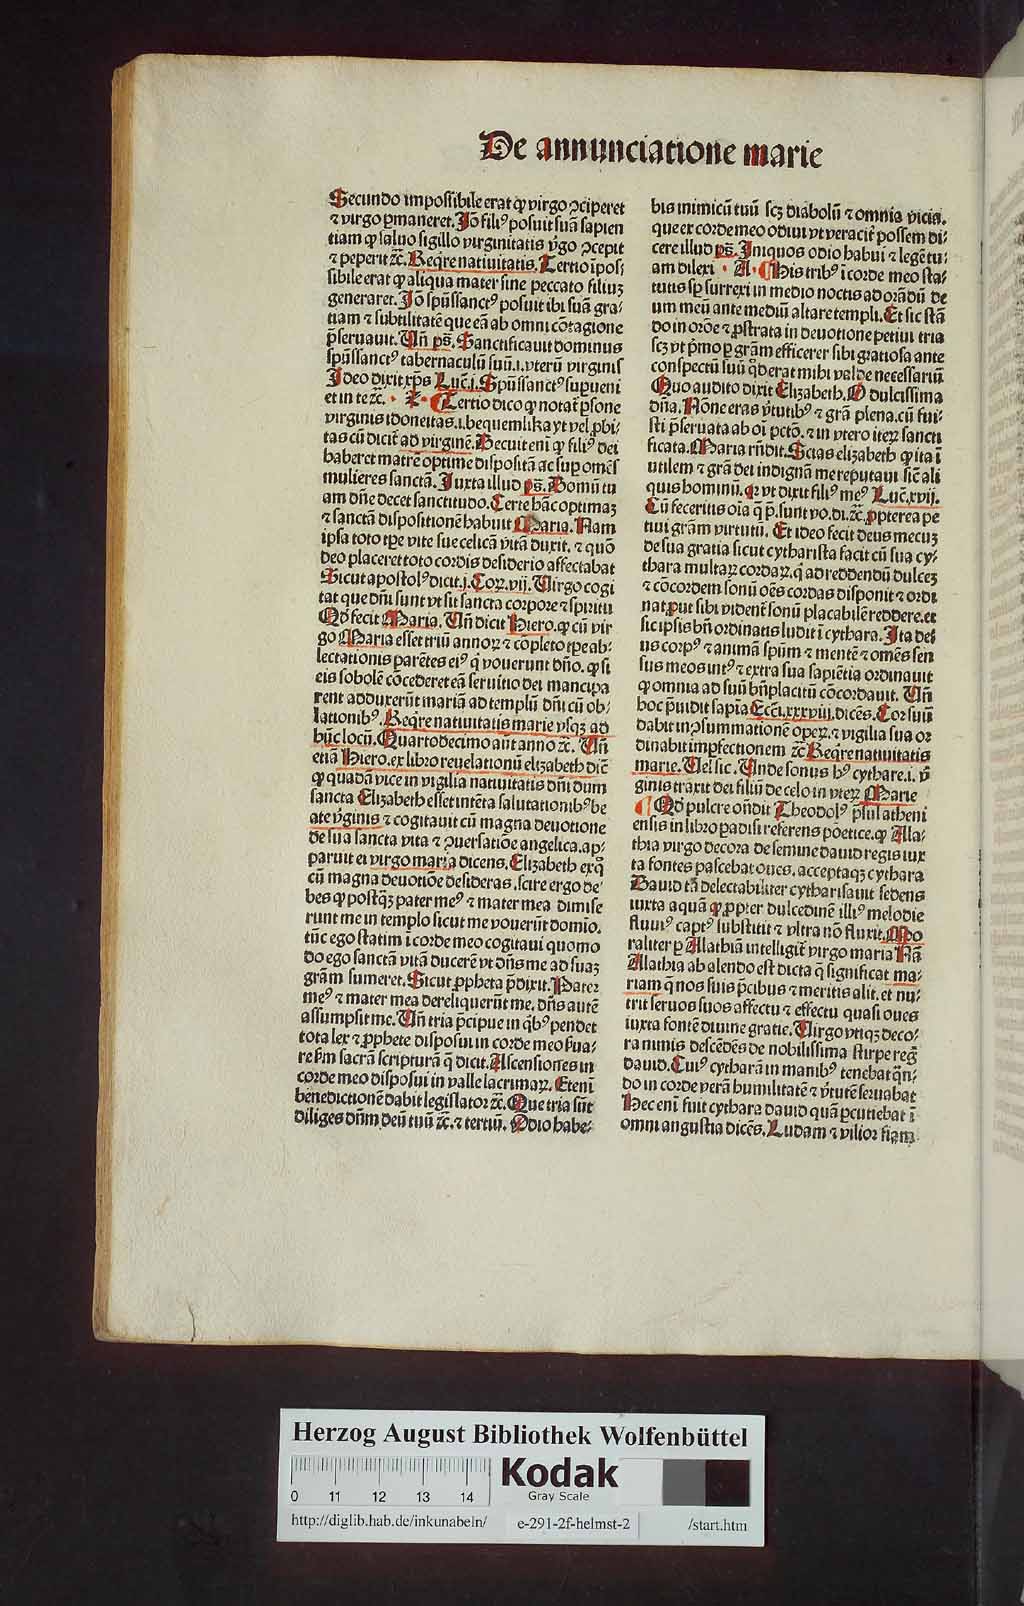 De annunciatione marie
Secundo impossibile erat ꝙ virgo ꝯciperet
⁊ virgo ꝑmaneret. Jõ filiꝰ posuit suã sapien
tiam ꝙ saluo sigillo virginitatis ṽgo ꝯcepit
⁊ peperit ⁊c̃. Req̃re natiuitatis. Tertio ĩpos⸗
sibile erat ꝙ aliqua mater sine peccato filiuꝫ
generaret. Jõ spũssanctꝰ posuit ibi suã gra⸗
tiam ⁊ subtilitatẽ que eã ab omni cõtagione
p̃seruauit. Uñ ps̃. Sanctificauit dominus
spũssanctꝰ tabernaculũ suũ .i. vterũ virginis
Ideo dixit xp̃s Luc̃.i. Spũssanctꝰ supueni
et in te ⁊c̃.
Tertio dico ꝙ notat̃ ꝑsone
virginis idoneitas .i. bequemlika yt vel ꝓbi⸗
tas cũ dicit̃ ad virginẽ. Decuit eni ꝙ filiꝰ dei
haberet matrẽ optime dispositã ac sup omẽs
mulieres sanctã. Juxta illud ps̃. Domũ tu
am dñe decet sanctitudo. Certe hãc optimaꝫ
⁊ sanctã dispositionẽ habuit Maria. Nam
ipsa toto tp̃e vite sue celicã vitã duxit. ⁊ quõ
deo placeret toto cordis desiderio affectabat
Sicut apostolꝰ dicit .j. Coꝝ.vij. Uirgo cogi
tat que dñi sunt vt sit sancta corpore ⁊ spiritu
Qð fecit Maria. Uñ dicit Hiero. ꝙ cũ vir
go Maria esset triũ annoꝝ ⁊ cõpleto tp̃e ab⸗
lectationis parẽtes eiꝰ q̃ vouerunt dño. ꝙ si
eis sobolẽ cõcederet eã seruitio dei mancipa
rent adduxerũt mariã ad templũ dñi cũ ob⸗
lationibꝰ. Req̃re natiuitatis marie vsqꝫ ad
hũc locũ. Quartodecimo aũt anno ⁊c̃. Uñ
etiã Hiero. ex libro reuelationũ elizabeth dic̃
ꝙ quadã vice in vigilia natiuitatis dñi dum
sancta Elizabeth esset intẽta salutationibꝰ be
ate ṽginis ⁊ cogitauit cũ magna deuotione
de sua sancta vita ⁊ ꝯuersatiõe angelica. ap⸗
paruit ei virgo maria dicens. Elizabeth ex q̃
cũ magna deuotiõe desideras. scire ergo de
bes ꝙ postqꝫ pater meꝰ ⁊ mater mea dimise
runt me in templo sicut me vouerũt domio.
tũc ego statim ĩ corde meo cogitaui quomo
do ego sanctã vitã ducerẽ vt dñs me ad suaꝫ
grãm sumeret. Sicut ꝓpheta p̃dixit. Pater
meꝰ ⁊ mater mea dereliquerũt me. dñs autẽ
assumpsit me. Uñ tria p̃cipue in q̃bꝰ pendet
tota lex ⁊ ꝓphete disposui in corde meo ẜua⸗
re ẜm sacrã scripturã q̃ dicit. Ascensiones in
corde meo disposui in valle lacrimaꝝ. Eteni
benedictionẽ dabit legislator ⁊c̃. Que tria sũt
diliges dñm deũ tuũ ⁊c̃. ⁊ tertiũ. Odio habe⸗
bis inimicũ tuũ scꝫ diabolũ ⁊ omnia vicia.
que ex corde meo odiui vt veracit̃ possem di⸗
cere illud ps̃. Iniquos odio habui ⁊ legẽ tu⸗
am dilexi
His tribꝰ ĩ corde meo sta⸗
tutis sp̃ surrexi in medio noctis ad orãdũ de
um meũ ante mediũ altare templi. Et sic stã
do in orõe ⁊ ꝓstrata in deuotione petiui tria
scꝫ vt p̃mo ꝑ grãm efficerer sibi gratiosa ante
conspectũ suũ q̃d erat mihi valde necessariũ.
Quo audito dixit Elizabeth. O dulcissima
dña. None eras ṽtutibꝰ ⁊ grã plena. cũ fui⸗
sti p̃seruata ab oi pctõ. ⁊ in vtero iteꝝ sancti
ficata. Maria rñdit. Scias elizabeth ꝙ ita ĩ
utilem ⁊ grã dei indignã me reputaui sic̃ ali
quis hominũ. Q vt dixit filiꝰ meꝰ Luc̃.xvij.
Cũ feceritis oia q̃ p̃. sunt vo. di. ⁊c̃. ꝓpterea pe
tiui grãm virtutũ. Et ideo fecit deus mecuꝫ
de sua gratia sicut cytharista facit cũ sua cy⸗
thara multaꝝ cordaꝝ. q̃ ad reddendũ dulceꝫ
⁊ cõcordem sonũ oẽs cordas disponit ⁊ ordi
nat ꝓut sibi vident̃ sonũ placabilẽ reddere. et
sic ipsis bñ ordinatis ludit ĩ cythara. Ita de⸗
us corpꝰ ⁊ animã spũm ⁊ mentẽ ⁊ omẽs sen
sus meos intꝰ ⁊ extra sua sapiẽtia ordinauit
ꝙ omnia ad suũ bñplacitũ cõcordauit. Uñ
hoc p̃uidit sapia Ecci.xxxviij. dicẽs. Cor suũ
dabit in ꝯsummationẽ opeꝝ. ⁊ vigilia sua or
dinabit imꝑfectionem ⁊c̃ Req̃re natiuitatis
marie. Uel sic. Unde sonus hꝰ cythare .i. ṽ
ginis traxit dei filiũ de celo in vteꝝ Marie
Qð pulcre oñdit Theodolꝰ p̃sul atheni
ensis in libro padisi referens põetice. ꝙ Alla⸗
thia virgo decora de semine dauid regis iux
ta fontes pascebat oues. acceptaqꝫ cythara
Dauid tã delectabiliter cytharisauit sedens
iuxta aquã ꝙ ꝓpter dulcedinẽ illiꝰ melodie
fluuiꝰ captꝰ substitit ⁊ vltra nõ fluxit. Mo
raliter ꝑ Allathiã intelligit̃ virgo maria Nã
Allathia ab alendo est dicta q̃ significat ma⸗
riam q̃ nos suis p̃cibus ⁊ meritis alit. et nu⸗
trit seruos suos affectu ⁊ effectu quasi oues
iuxta fontẽ diuine gratie. Uirgo vtiqꝫ deco⸗
ra nimis descẽdẽs de nobilissima stirpe reg̃
dauid. Cuiꝰ cytharã in manibꝰ tenebat q̃n⸗
do in corde verã humilitatẽ ⁊ ṽtutẽ seruabat
Hec eni fuit cythara dauid quã ꝑcutiebat ĩ
omni angustia dicẽs. Ludam ⁊ vilior fiam
Herzog August Bibliothek Wolfenbüttel
0 11 12 13 14
Kodak
Gray Scale
http://diglib.hab.de/inkunabeln/ e-291-2f-helmst-2 /start.htm